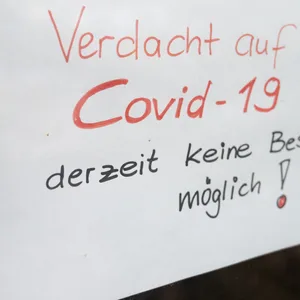 Verdacht auf
Covid-19
derzeit keine Bes
möglich!